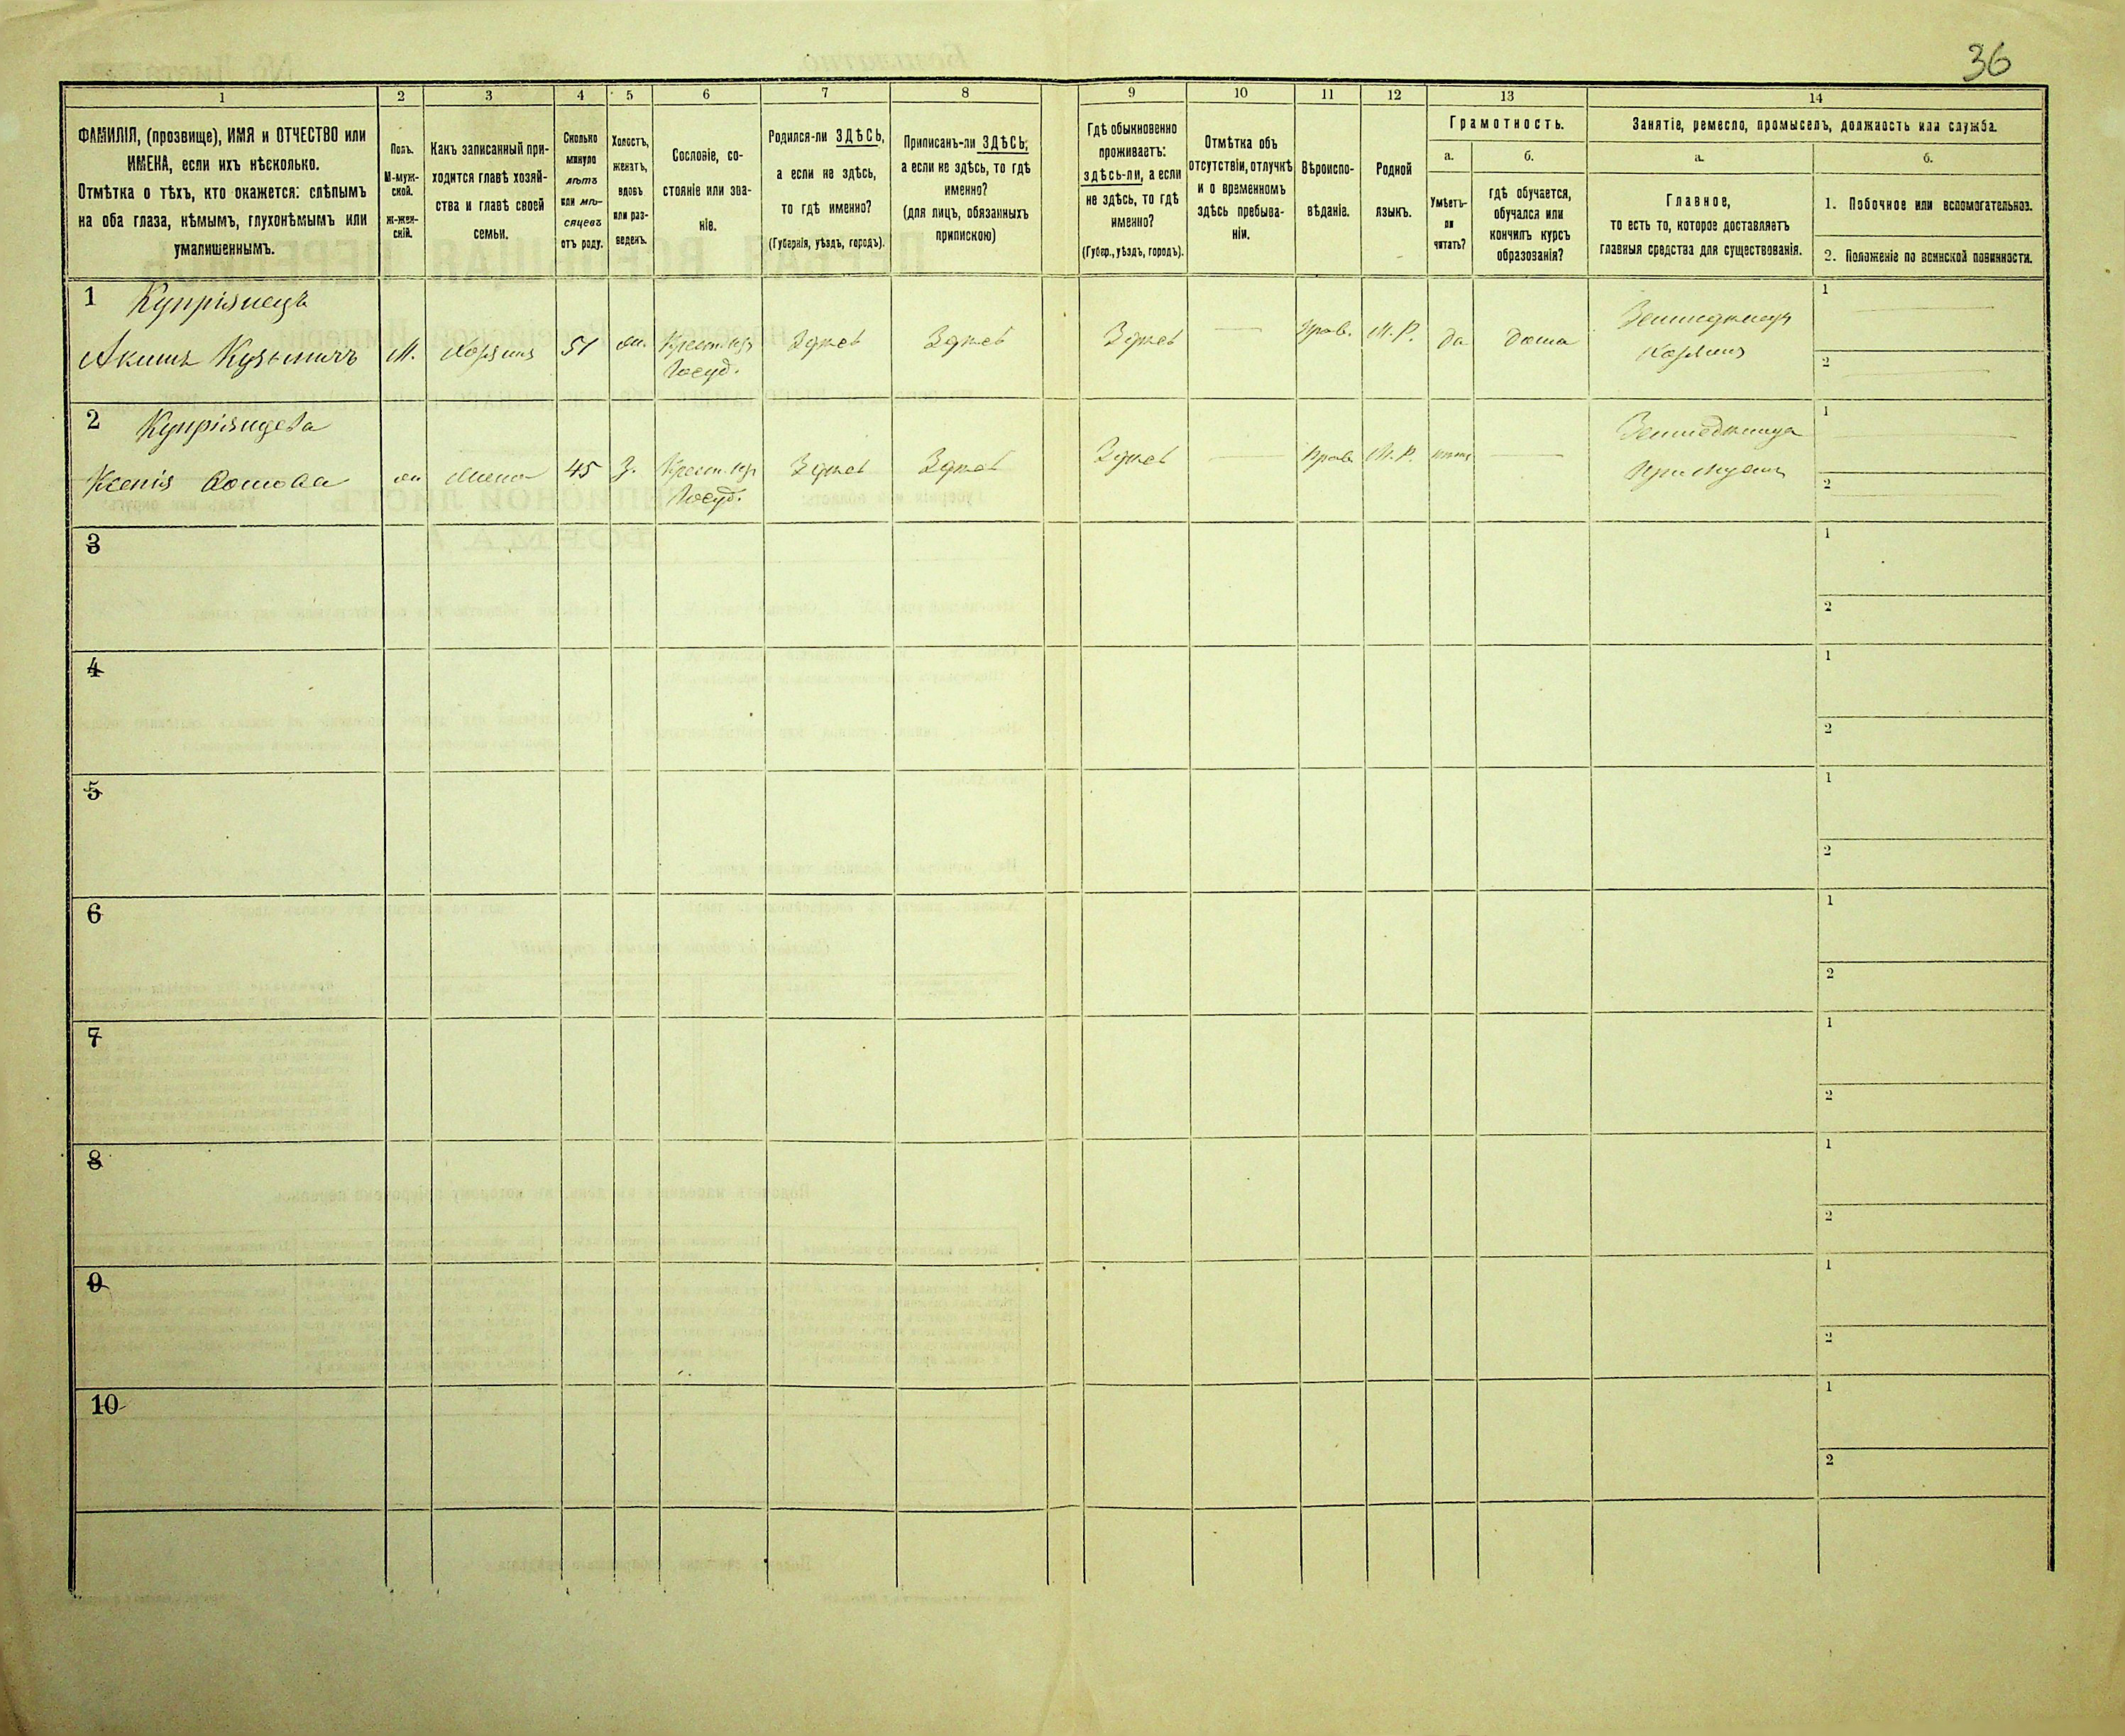 36
1
2
3
4
5
6
7
8
9
10
11
12
13
14
ФАМИЛІЯ, (прозвище), ИМЯ и ОТЧЕСТВО или
ИМЕНА, если ихъ нѣсколько.
Отмѣтка о тѣхъ, кто окажется: слѣпымъ
на оба глаза, нѣмымъ, глухонѣмымъ или
умалишеннымъ.
Полъ.
М-муж-
ской.
ж-жен-
скій.
Какъ записанный при-
ходится главѣ хозяй-
ства и главѣ своей
семьи.
Сколько
минуло
лѣтъ
или мѣ-
сяцевъ
отъ роду.
Холостъ,
женатъ,
вдовъ
или раз-
веденъ.
Сословіе, со-
стояніе или зва-
ніе.
Родился-ли ЗДѢСЬ,
а если не здѣсь,
то гдѣ именно?
(Губернія, уѣздъ, городъ).
Приписанъ-ли ЗДѢСЬ;
а если не здѣсь, то гдѣ
именно?
(для лицъ, обязанныхъ
припискою)
Гдѣ обыкновенно
проживаетъ:
здѣсь-ли, а если
не здѣсь, то гдѣ
именно?
(Губер., уѣздъ, городъ).
Отмѣтка объ
отсутствіи, отлучкѣ
и о временномъ
здѣсь пребыва-
ніи.
Вѣроиспо-
вѣданіе.
Родной
языкъ.
Грамотность.
а.
Умѣетъ-
ли
читать?
б.
гдѣ обучается,
обучался или
кончилъ курсъ
образованія?
Занятіе, ремесло, промыселъ, должность или служба.
а.
Главное,
то есть то, которое доставляетъ
главныя средства для существованія.
б.
1. Побочное или вспомогательное.
2. Положеніе по воинской повинности.
1 Купріянецъ
Акимъ Кузьмичъ М. Хозяинъ 51 жн. Крест. изъ Здѣсь Здѣсь Здѣсь — Прав. М. Р. да дома
Госуд.
Земледѣлецъ
Хозяинъ
1
2
2 Купріянцева
Ксенія Фомова жн Жена 45 З. Крест. изъ Здѣсь Здѣсь Здѣсь — Прав. М. Р. нѣтъ —
Госуд.
Земледѣлица
При мужѣ
1
2
3
1
2
4
1
2
5
1
2
6
1
2
7
1
2
8
1
2
9
1
2
10
1
2